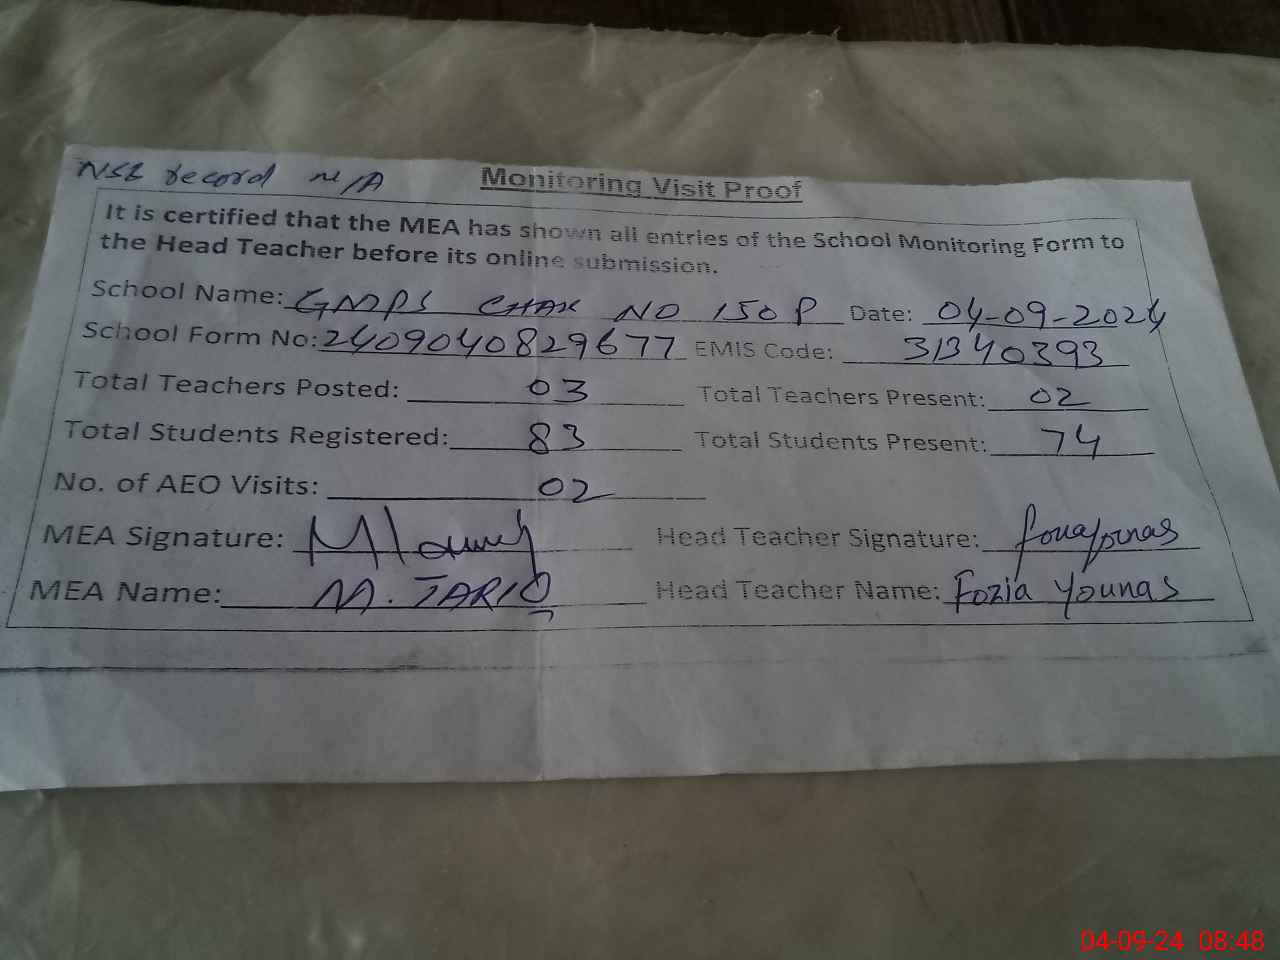 NSB record N/A
Monitoring Visit Proof
It is certified that the MEA has shown all entries of the School Monitoring Form to
the Head Teacher before its online submission.
School Name: GMPS CHAK NO 150 P Date: 04-09-2024
School Form No: 2409040829677 EMIS Code: 31340393
Total Teachers Posted: 03 Total Teachers Present: 02
Total Students Registered: 83 Total Students Present: 74
No. of AEO Visits: 02
MEA Signature: Head Teacher Signature:
MEA Name: M. TARIQ Head Teacher Name: Fozia Younas
04-09-24 08:48